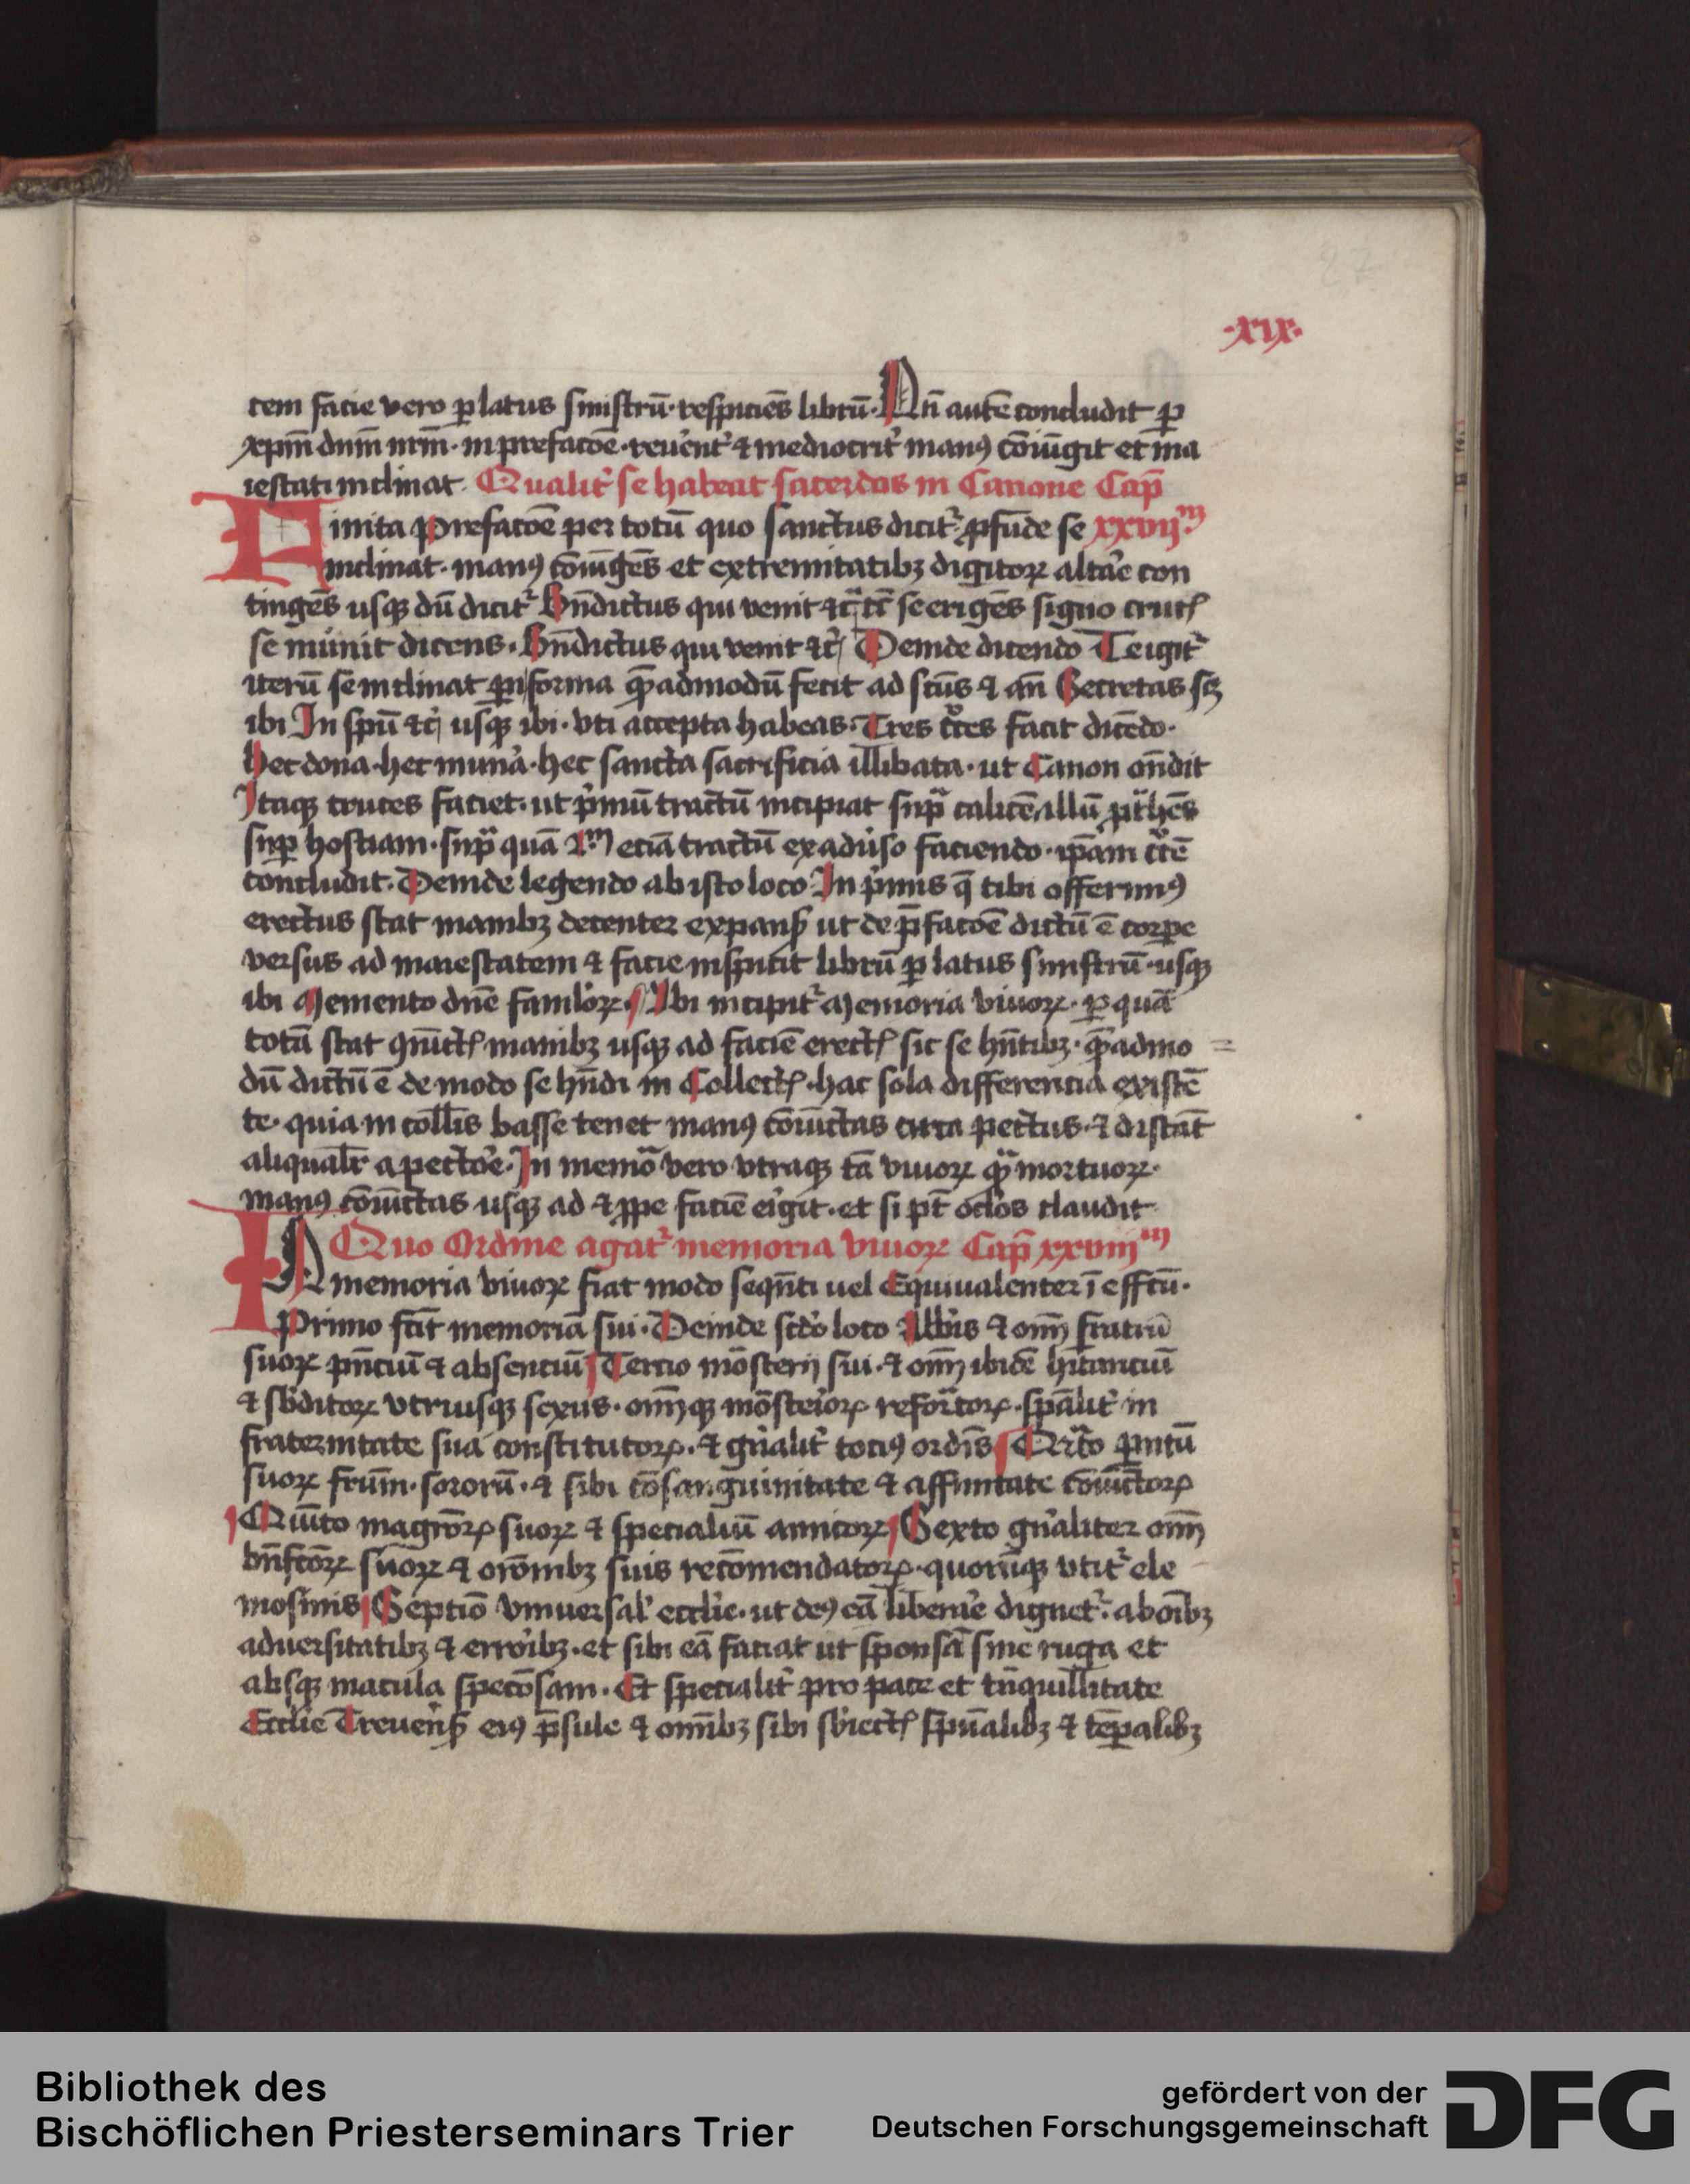 27
·xix·
tem facie vero ꝑ latus sinistrū· respiciēs librū· Qn̄ autē concludit ꝑ
xpm̄ dnm̄ nrm̄· in prefacōe· reuēnt᷑ ⁊ mediocrit᷑ manꝰ cōiūgit et ma
iestati inclinat· Qualit᷑ se habeat sacerdos in Canone Cap̄
Finita prefacōe per totū quo sanctus dicit᷑ ꝓfūde se xxvijᵐ
inclinat· manꝰ cōiūgēs et extremitatibꝫ digitoꝝ altāe con
tingēs usqꝫ dū dicit᷑ Bn̄dictus qui venit ⁊c̄ tc̄ se erigēs signo crucꝭ
se munit dicens· Bn̄dictus qui venit ⁊c̄ Deinde dicendo Te igit᷑
iterū se inclinat forma qꝫadmodū fecit ad sctūs ⁊ an̄ Secretas scꝫ
ibi In spū ⁊c̄ usqꝫ ibi· vti accepta habeas· Tres c̄ces facit dicēdo·
hec dona· hec mun᷑a· hec sancta sacrificia illibata· ut Canon on̄dit
Itaqꝫ cruces faciet· ut p᷑mū tractū incipiat suꝑ calicē illū ꝓt᷑hēs
suꝑ hostiam· suꝑ quā 2ᵐ eciā tractū ex adu᷑so faciendo· ip̄am c̄cē
concludit· Deinde legendo ab isto loco In p᷑mis q̄ tibi offerimꝰ
erectus stat manibꝫ decenter expansꝭ ut de p̄facōe dictū ē corꝑe
versus ad maiestatem ⁊ facie inspicit librū ꝑ latus sinistrū· usqꝫ
ibi Memento dn̄e famlōꝝ· Ibi incipit᷑ Memoria viuoꝝ· ꝑ quā
totā stat 9iūctꝭ manibꝫ usqꝫ ad faciē erectꝭ sic se hn̄tibꝫ· qꝫadmo
dū dictū ē de modo se hn̄di in Collectꝭ· hac sola differencia existē
te· quia in coll̄is basse tenet manꝰ cōiūctas circa pectus· ⁊ distāt
aliqual᷑r a pectōe· In memōa vero vtraqꝫ tā viuoꝝ qᷓ mortuoꝝ·
manꝰ cōiūctas usqꝫ ad ⁊ ꝓpe faciē ei᷑git· et si pt̄ oclōs claudit
Quo Ordine agat᷑ memoria viuoꝝ Cap̄ xxviijᵐ
In memoria viuoꝝ fiat modo seqn̄ti uel Equiualenter ī effcū·
Primo fac̄it memoriā sui· Deinde scdō loco Abb̄is ⁊ om̄ fratrū
suoꝝ pn̄ciū ⁊ absenciū Tercio mōsterij sui· ⁊ om̄ ibidē hītanciū
⁊ sb̄ditoꝝ vtriusqꝫ sexus· om̄qꝫ mōsteīoꝝ refor᷑toꝝ· spāl᷑it in
fraternitate sua constitutoꝝ· ⁊ gn̄alit᷑ tociꝰ ordīs Qr᷑to ꝑntū
suoꝝ frūm· sororū· ⁊ sibi cōsanguinitate ⁊ affinitate cōiūctoꝝ
Quīto magrōꝝ suoꝝ ⁊ specialiū amicoꝝ Sexto gn̄aliter om̄
bn̄fcōꝝ suoꝝ ⁊ orōnibꝫ suis recōmendatoꝝ· quorūqꝫ vtit᷑ ele
mosinis Septīo vniuersal᷑ eccl̄ie· ut deꝰ eā liberāe dignet᷑ ab oībꝫ
aduersitatibꝫ ⁊ errōibꝫ· et sibi eā faciat ut sponsā sine ruga et
absqꝫ macula speciōsam· Et specialit᷑ pro pace et tn̄quillitate
Eccl̄ie Treuēnꝭ eiꝰ p̄sule ⁊ om̄ibꝫ sibi sb̄iectꝭ spūalibꝫ ⁊ tēꝑalibꝫ
Bibliothek des
Bischöflichen Priesterseminars Trier
gefördert von der
Deutschen Forschungsgemeinschaft
DFG